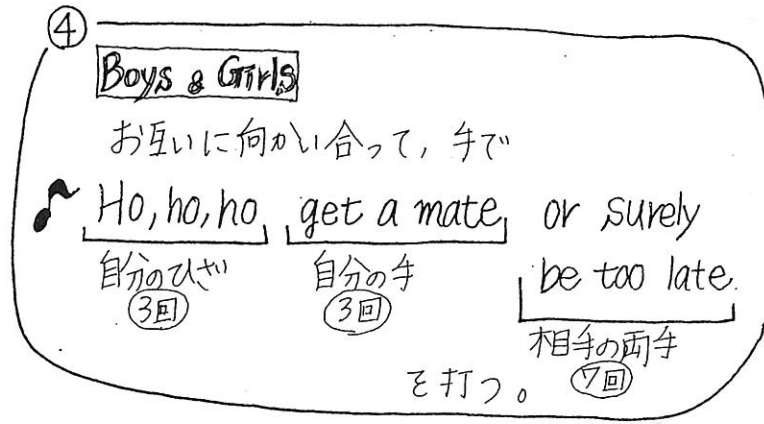 ④
Boys & Girls
お互いに向かい合って, 手で
♪ Ho, ho, ho get a mate or surely
be too late.
自分のひざ 自分の手
3回 3回
相手の両手
7回
を打つ。